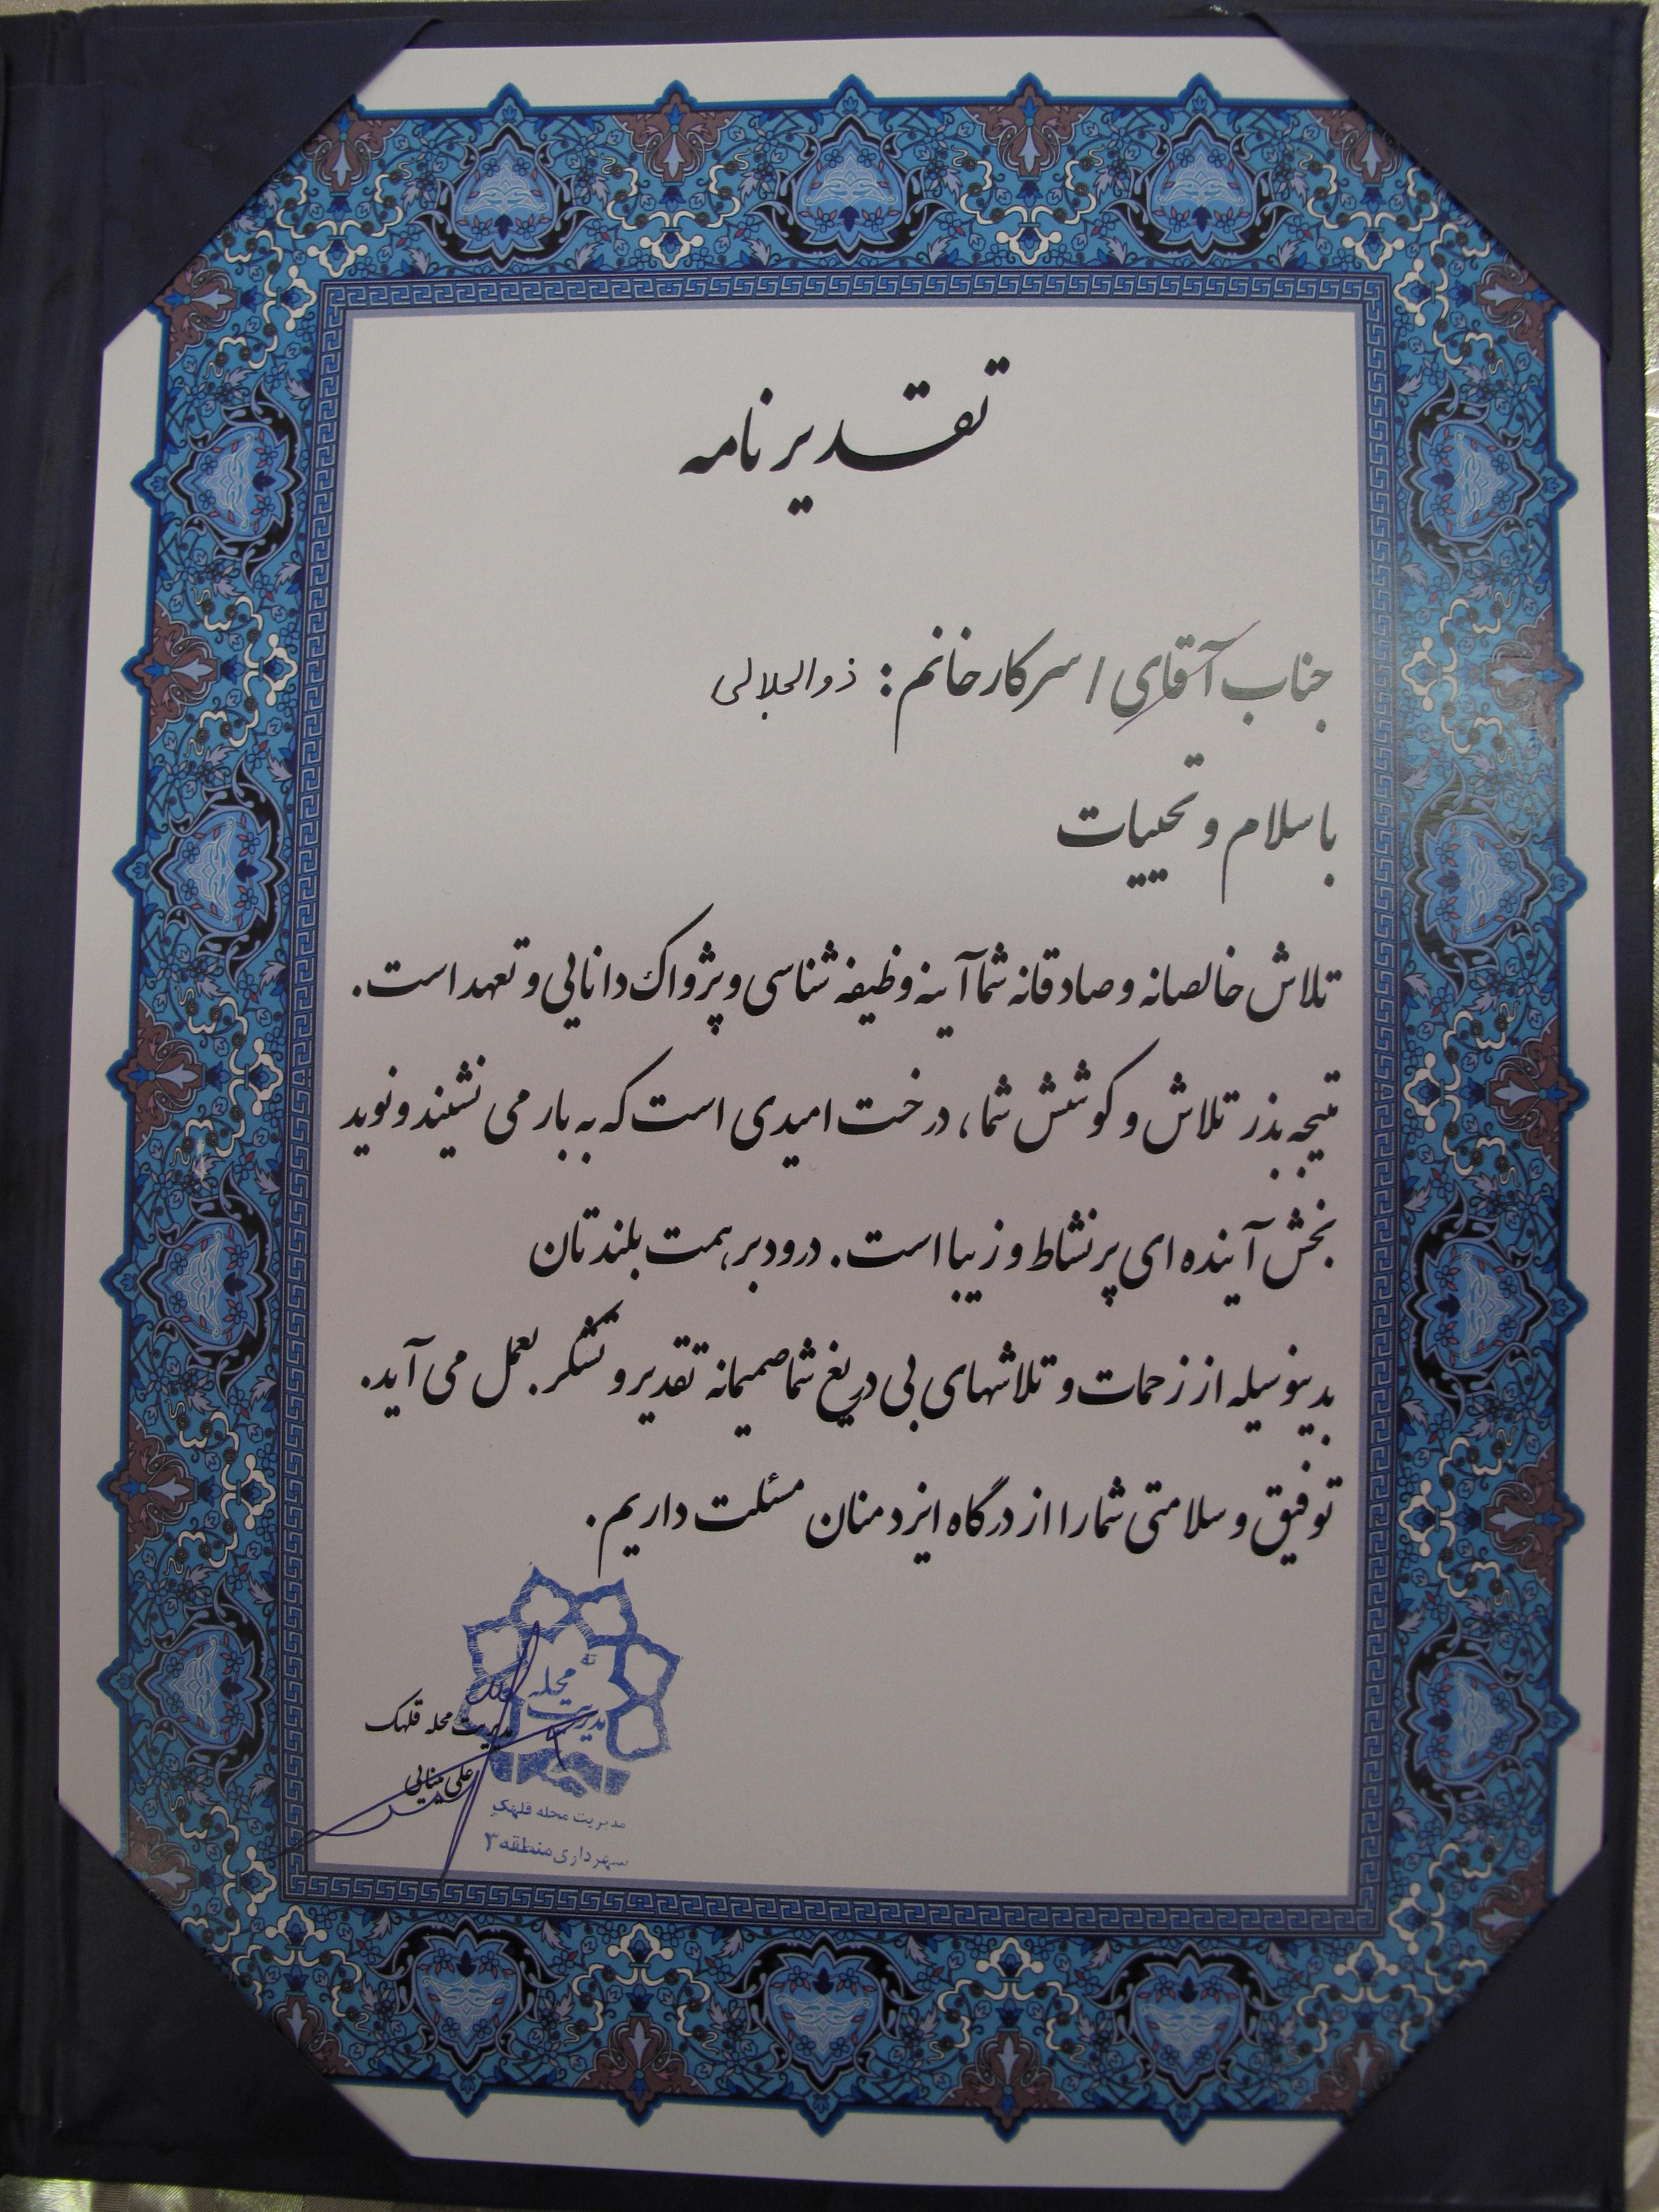 تقدیرنامه
جناب آقای / سرکار خانم : ذوالجلالی
با سلام و تحییات
تلاش خالصانه و صادقانه شما آینه وظیفه شناسی و پژواک دانایی و تعهد است.
نتیجه بذر تلاش و کوشش شما، درخت امیدی است که به بار می نشیند و نوید
بخش آینده ای پر نشاط و زیبا است. درود بر همت بلندتان
بدینوسیله از زحمات و تلاشهای بی دریغ شما صمیمانه تقدیر و تشکر بعمل می آید.
توفیق و سلامتی شما را از درگاه ایزد منان مسئلت داریم.
محله
مدیریت
مدیریت محله قلهک
علی مینایی
مدیریت محله قلهک
شهرداری منطقه ۳